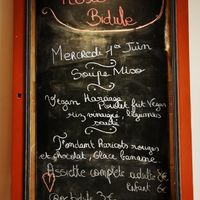 Bidule
Mercredi 1er Juin
Soupe Miso
Vegan
Poulet fut Vegan
riz, vinaigré, légumes
sauté
Fondant Haricots rouges
et chocolat, Glace banane
Assiette complète adulte 8€
enfant 6€
3€